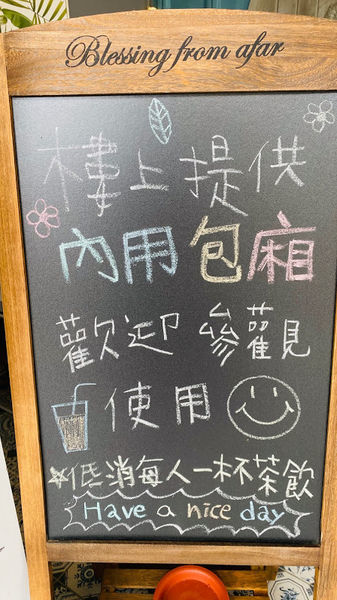 Blessing from afar
樓上提供
內用包廂
歡迎參觀
使用
低消每人一杯茶飲
Have a nice day